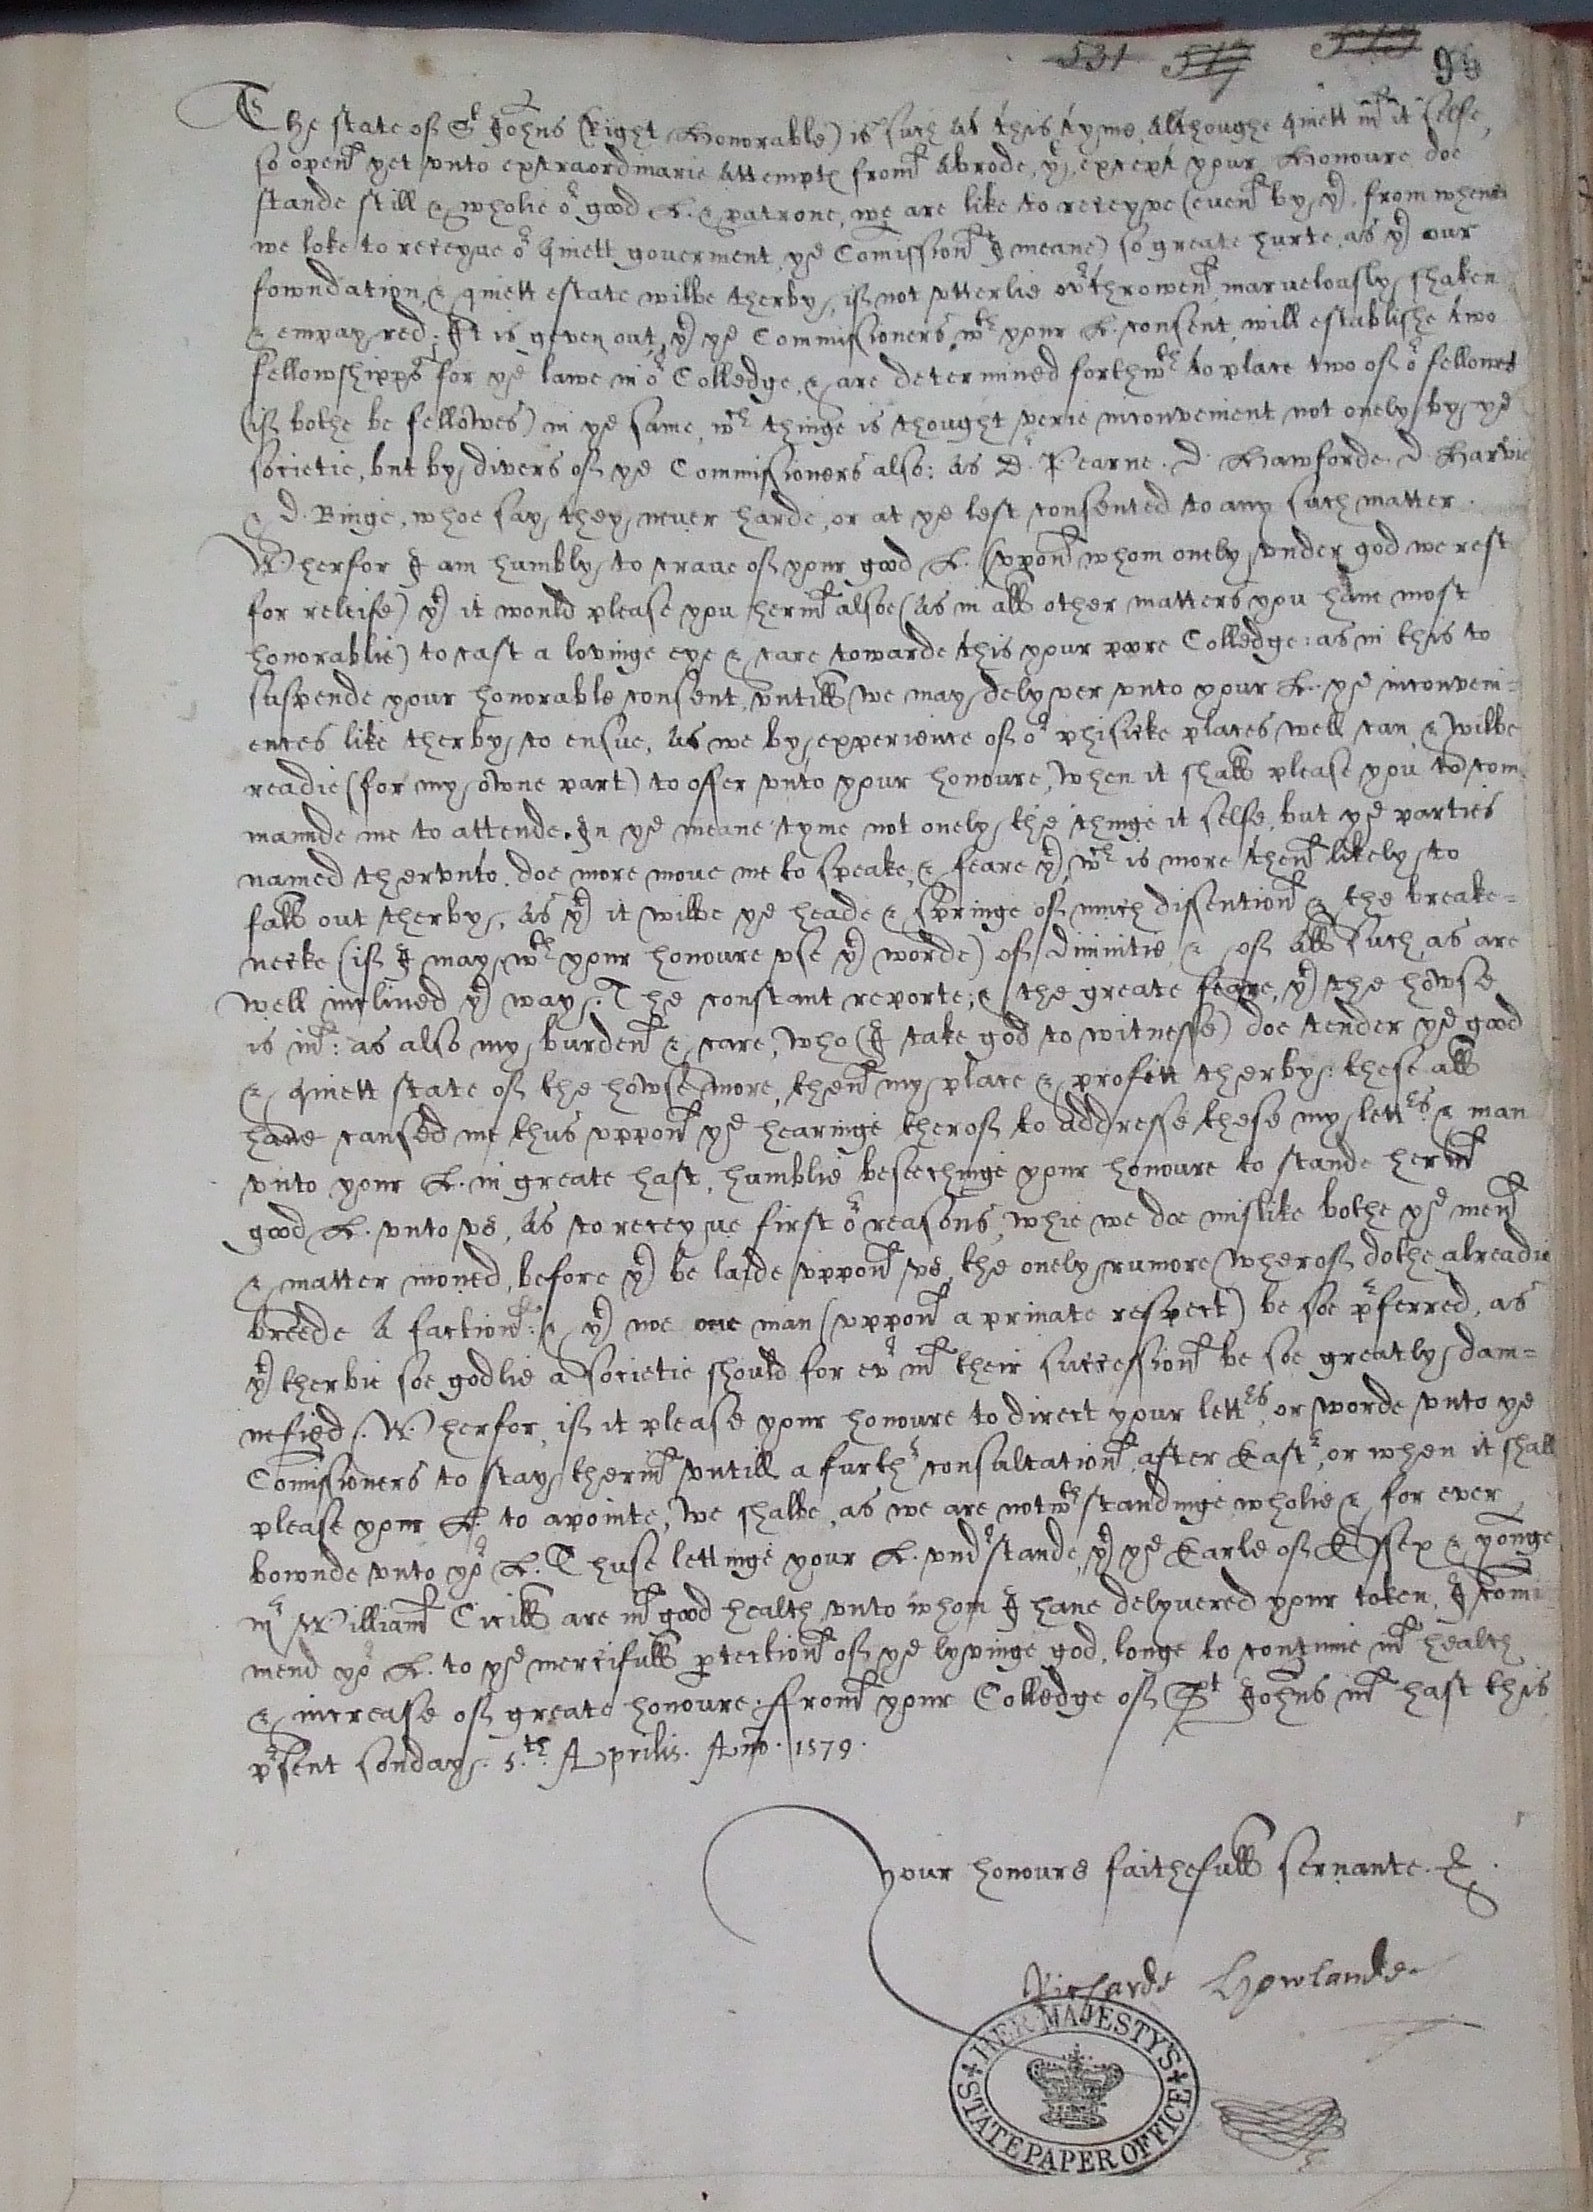 531 517 96
The state of St Johns (Right Honorable) is such as this tyme, Althoughe quiett in it selfe,
so open yet unto extraordinarie attemptes from abrode, yt, except your Honoure doe
stande still & wholie or good L. & patrone, we are like to receyve (even by yt, from whence
we loke to receyue or quiett gouerment, ye Comission I meane) so greate hurte, as yt our
fowndation, & quiett estate wilbe therby, if not utterlie overthrowen, marvelously shaken
& empayred: It is geven out, yt ye Commissioners, wth your L. consent, will establishe two
fellowshipps for ye lawe in or Colledge, & are determined forthwth to place two of or fellowes
(if bothe be fellowes) in ye same, wch thinge is thought verie inconvenient not onely by ye
societie, but by divers of ye Commissioners also: as D. Pearne. D. Hawforde. D. Harvie
& D. Binge, whoe say they neuer harde, or at ye lest consented to any such matter.
Wherfor I am humbly to craue of your good L. (vppon whom onely under god we rest
for releife) yt it would please you herin alsoe (as in all other matters you haue most
honorablie) to cast a lovinge eye & care towarde this your pore Colledge: as in this to
suspende your honorable consent, untill we may delyver unto your L. ye inconveni=
ences like therby to ensue, as we by experience of or phisicke places well can, & wilbe
readie (for my owne part) to offer unto your honoure, when it shall please you to com
maunde me to attende. In ye meane tyme not onely the thinge it selfe, but ye parties
named therunto, doe more moue me to speake, & feare yt, wch is more then likely to
fall out therby, as yt it wilbe ye heade & springe of much dissention & the breake=
necke (if I may wth your honoure vse yt worde) of diuinitie, & of all such as are
well inclined yt way. The constant reporte, & the greate feare, yt the howse
is in: as also my burden & care, who (I take god to witnesse) doe tender ye good
& quiett state of the howse more, then my place & profitt therby: these all
haue caused me thus vppon ye hearinge therof to addresse these my letters & man
vnto your L. in greate hast, humblie beseechinge your honoure to stande herin
good L. vnto vs, as to receyue first or reasons, whie we doe mislike bothe ye men
& matter moued, before yt be laide vppon vs, the onely rumore wherof dothe alreadie
breede a faction: & yt noe one man (vppon a priuate respect) be soe preferred, as
yt therbie soe godlie a societie should for ever in their succession be soe greatly dam=
nefied. Wherfor, if it please your honoure to direct your letters, or worde vnto ye
Comissioners to stay therin vntill a further consultation, after Easter, or when it shall
please your L. to apointe, we shalbe, as we are notwthstandinge, wholie & for ever
bownde vnto yor L. Thuse lettinge your L. vnderstande, yt ye Earle of Essex & yonge
mr William Cicill are in good health, vnto whom I haue delyuered your token, I com
mend yor L. to ye mercifull protection of ye lyvinge god, longe to continue in health
& increase of greate honoure. From your Colledge of St Johns in hast this
present sonday. 5.th Aprilis. Ano. 1579.
your honours faithefull seruante. &.
Richarde Howlande
HER MAJESTY'S
STATE PAPER OFFICE